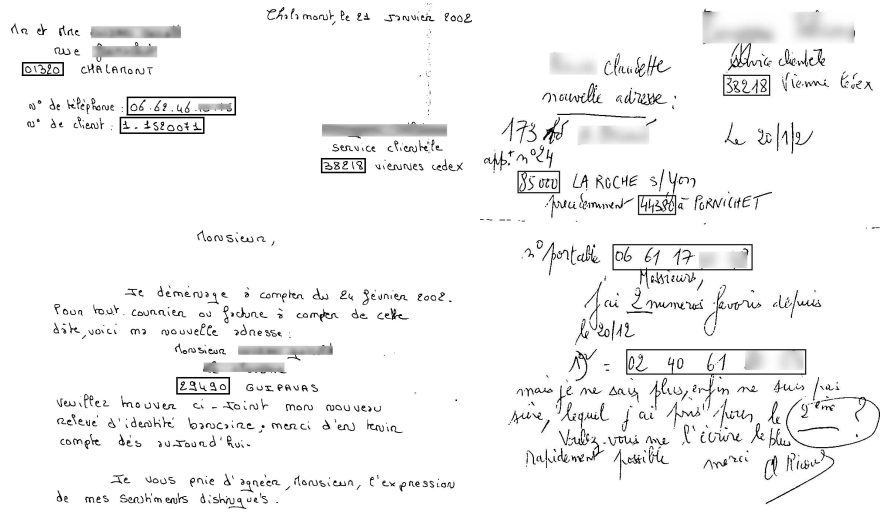 Chalamont, le 21 Janvier 2002
Mr et Mme
rue
01320 CHALAMONT
n° de téléphone : 06.62.46.
n° de client : 1.1520071
service clientèle
38218 viennes cedex
Monsieur,
Je déménage à compter du 24 février 2002.
Pour tout courrier ou facture à compter de cette
date, voici ma nouvelle adresse :
Monsieur
29490 GUIPAVAS
veuillez trouver ci-joint mon nouveau
relevé d'identité bancaire, merci d'en tenir
compte dès aujourd'hui.
Je vous prie d'agréer, Monsieur, l'expression
de mes sentiments distingués.
Claudette
service clientèle
38218 Vienne Cédex
nouvelle adresse :
173
Le 20/1/2
app.t n°24
85000 LA ROCHE s/Yon
précédemment 44380 à PORNICHET
n° portable 06 61 17
Messieurs,
J'ai 2 numeros favoris depuis
le 20/12
= 02 40 61
mais je ne sais plus, enfin ne suis pas
sûre, lequel j'ai pris pour le 2ème ?
Voulez-vous me l'écrire le plus
rapidement possible merci